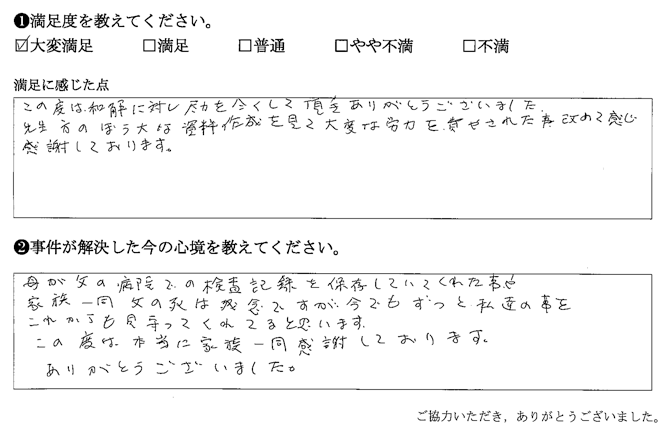 ❶満足度を教えてください。
☑大変満足 □満足 □普通 □やや不満 □不満
満足に感じた点
この度は和解に対し尽力を尽くして頂きありがとうございました。
先生方のぼう大な資料作成を見て大変な労力を費やされた事改めて感じ
感謝しております。
❷事件が解決した今の心境を教えてください。
母が父の病院での検査記録を保存していてくれた事や
家族一同父の死は残念ですが今でもずっと私達の事を
これからも見守ってくれてると思います。
この度は本当に家族一同感謝しております。
ありがとうございました。
ご協力いただき，ありがとうございました。